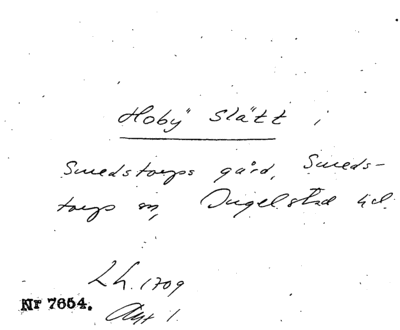 Hoby slätt i
Smedstorps gård, Smeds-
torps sn, Ingelstad hd.
Lh. 1709
Akt 1.
Nr 7654.